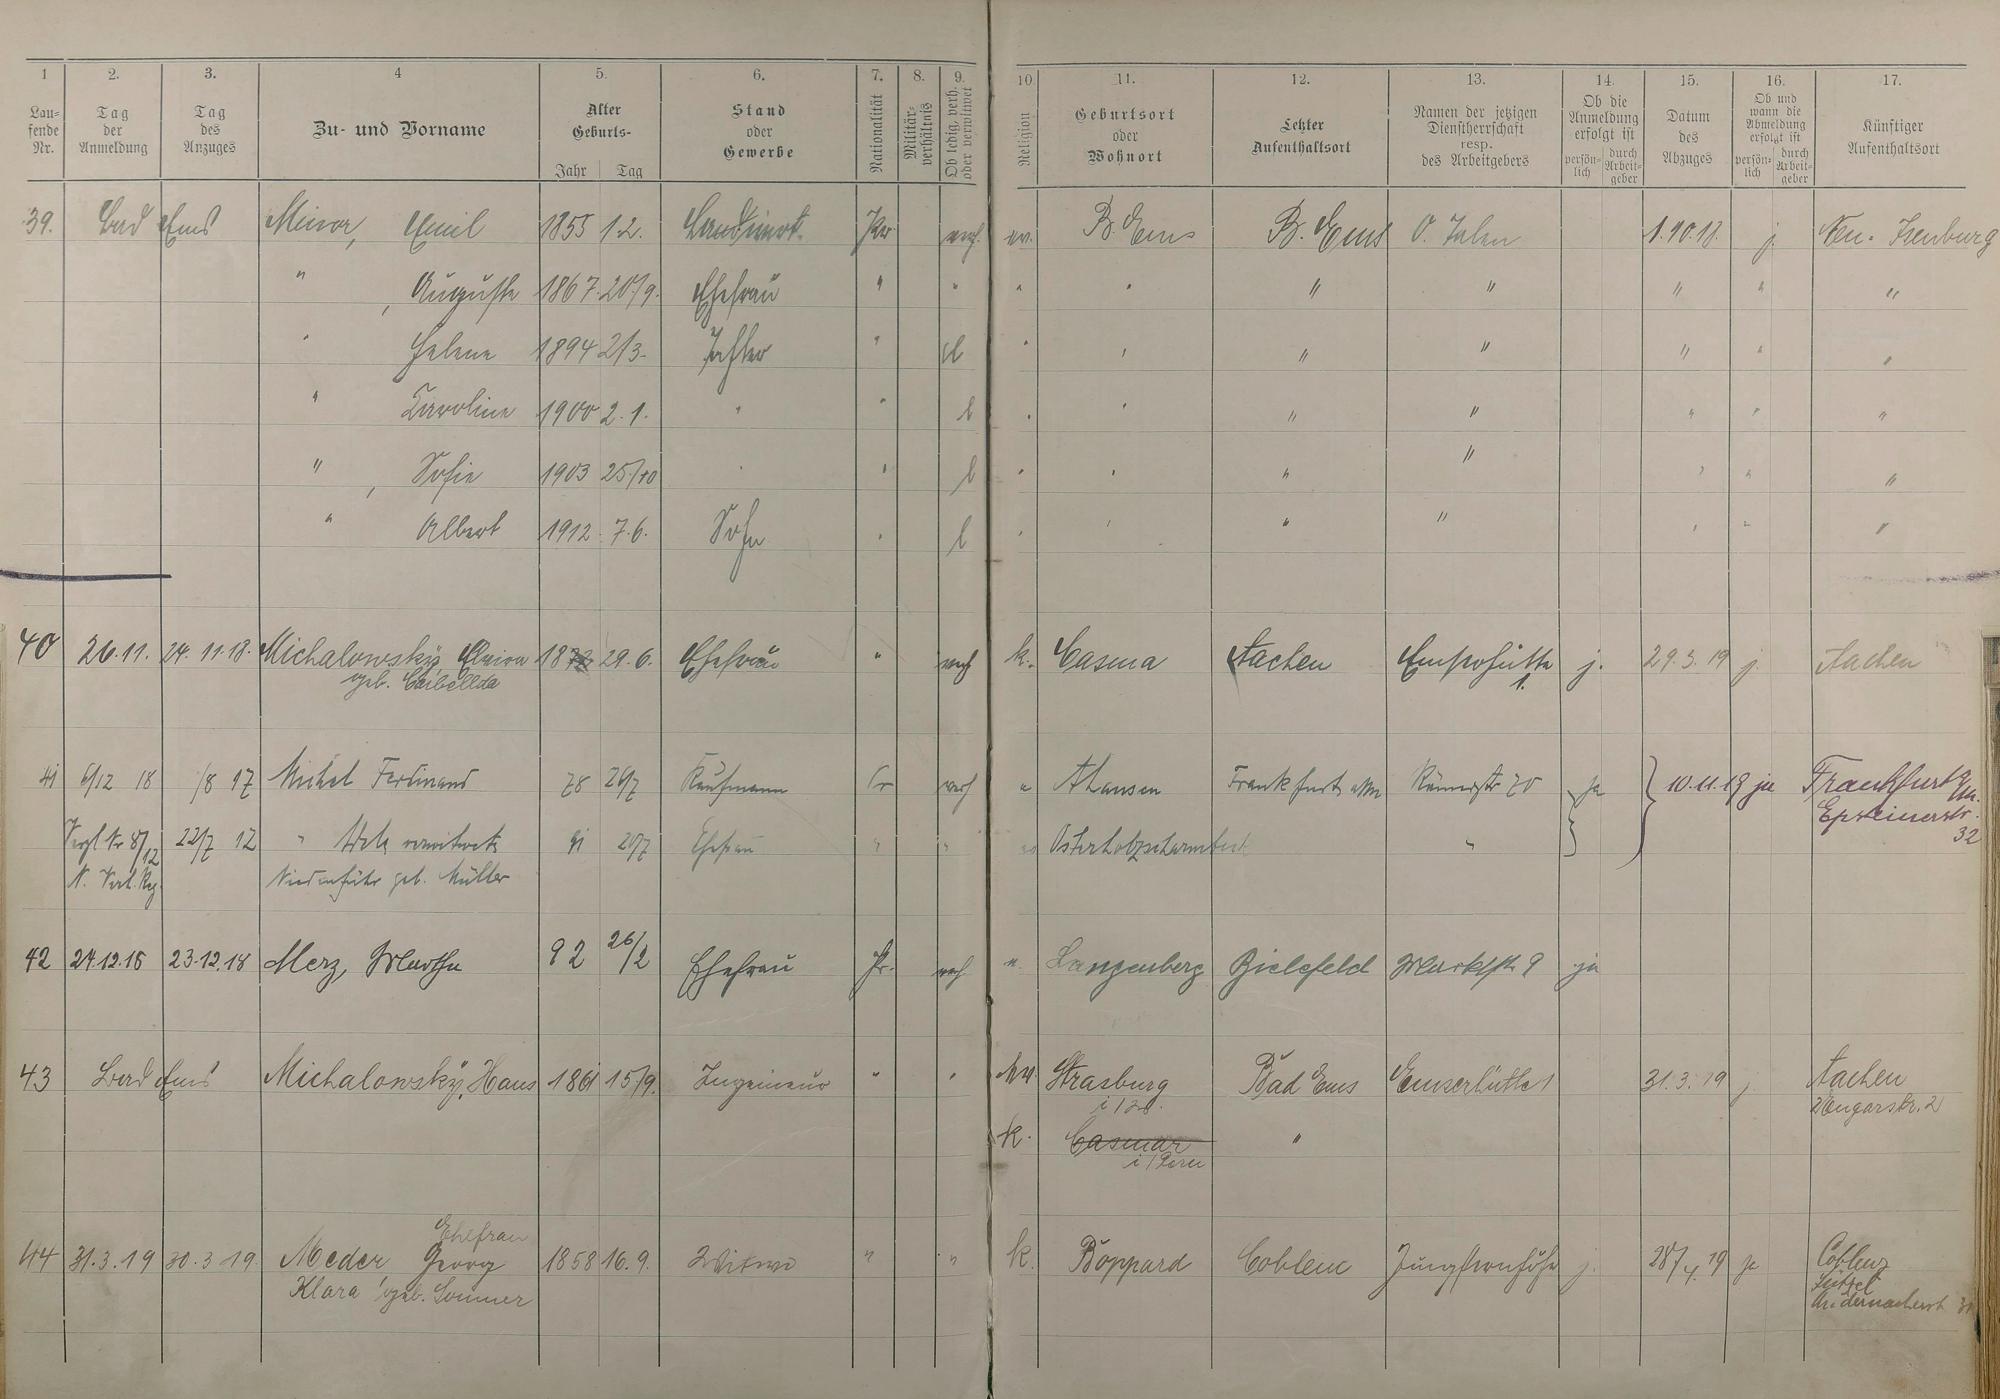 1 2. 3. 4 5. 6. 7. 8. 9. 10. 11. 12. 13. 14. 15. 16. 17.
Lau-
fende
Nr.
Tag
der
Anmeldung
Tag
des
Anzuges
Zu- und Vorname
Alter
Geburts-
Jahr Tag
Stand
oder
Gewerbe
Nationalität
Militär-
verhältnis
Ob ledig, verh.
oder verwitwet
Religion
Geburtsort
oder
Wohnort
Letzter
Aufenthaltsort
Namen der jetzigen
Dienstherrschaft
resp.
des Arbeitgebers
Ob die
Anmeldung
erfolgt ist
persön-
lich
durch
Arbeit-
geber
Datum
des
Abzuges
Ob und
wann die
Abmeldung
erfolgt ist
persön-
lich
durch
Arbeit-
geber
Künftiger
Aufenthaltsort
39. Bad Ems Minor, Emil 1855 1.2. Landwirt Pr verh. ev. B. Ems B. Ems 1.10.18 j. Neu-Isenburg
" , Auguste 1867 20/9. Ehefrau " " " " " " " " "
" Helene 1894 2/3. " l " " " " " " "
" Karoline 1900 2.1. " " l " " " " " " "
" , Sofie 1903 25/10 " " l " " " " " " "
" Albert 1912 7.6. Sohn " l " " " " " " "
40 26.11. 24.11.18. Michalowsky, Elvira 29.6. Ehefrau " verh k. Casma Aachen Emserhütte j. 29.3.19 j. Aachen
geb. 1.
41 6/12 18 /8 17 Michel Ferdinand 78 26/7 Kaufmann Pr verh " Frankfurt a/M Römerstr 70 ja 10.11.19 ja Frankfurt a/M.
22/7 12 " verwitwete 91 20/7 Ehefrau " " " " Epsteinerstr.
32
geb. Müller
42 24.12.18 23.12.18 Merz, Martha 92 26/2 Ehefrau Pr. verh " Langenberg Bielefeld Marktstr 9 ja
43 Bad Ems Michalowsky, Hans 1861 15/9. Ingenieur " " Strasburg Bad Ems Emserhütte 1 31.3.19 j Aachen
k. Casmar "
i/Peru
Ehefrau
44 31.3.19 30.3.19 Meder Georg 1858 16.9. Witwe " " k. Boppard Coblenz Jungfernhöhe j. 28/4.19 ja Coblenz
Klara geb. Sommer Lützel
Andernacherst